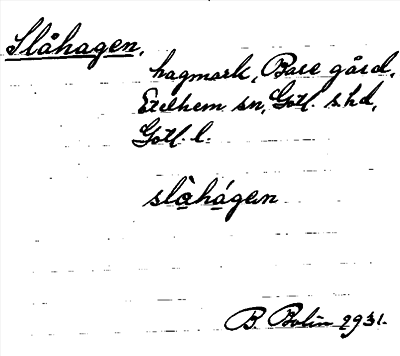 Slåhagen.
hagmark, Bare gård,
Etelhem sn, Gotl. s. hd,
Gotl. l.
slàhágen
B. Bolin 1931.